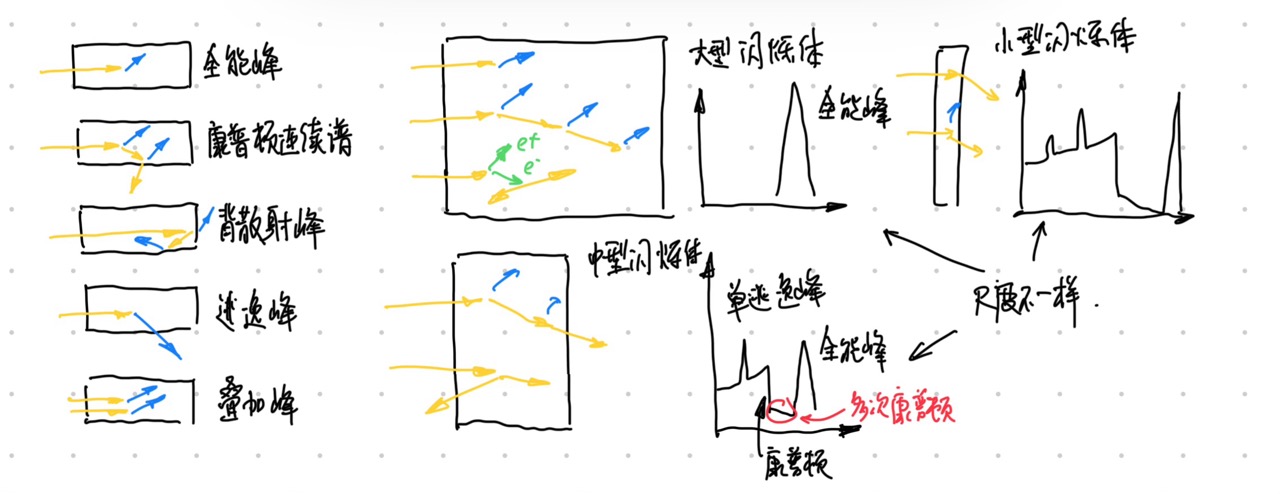 全能峰
康普顿连续谱
背散射峰
逃逸峰
叠加峰
e+
e-
大型闪烁体
全能峰
小型闪烁体
中型闪烁体
单逃逸峰
全能峰
多次康普顿
康普顿
尺度不一样.